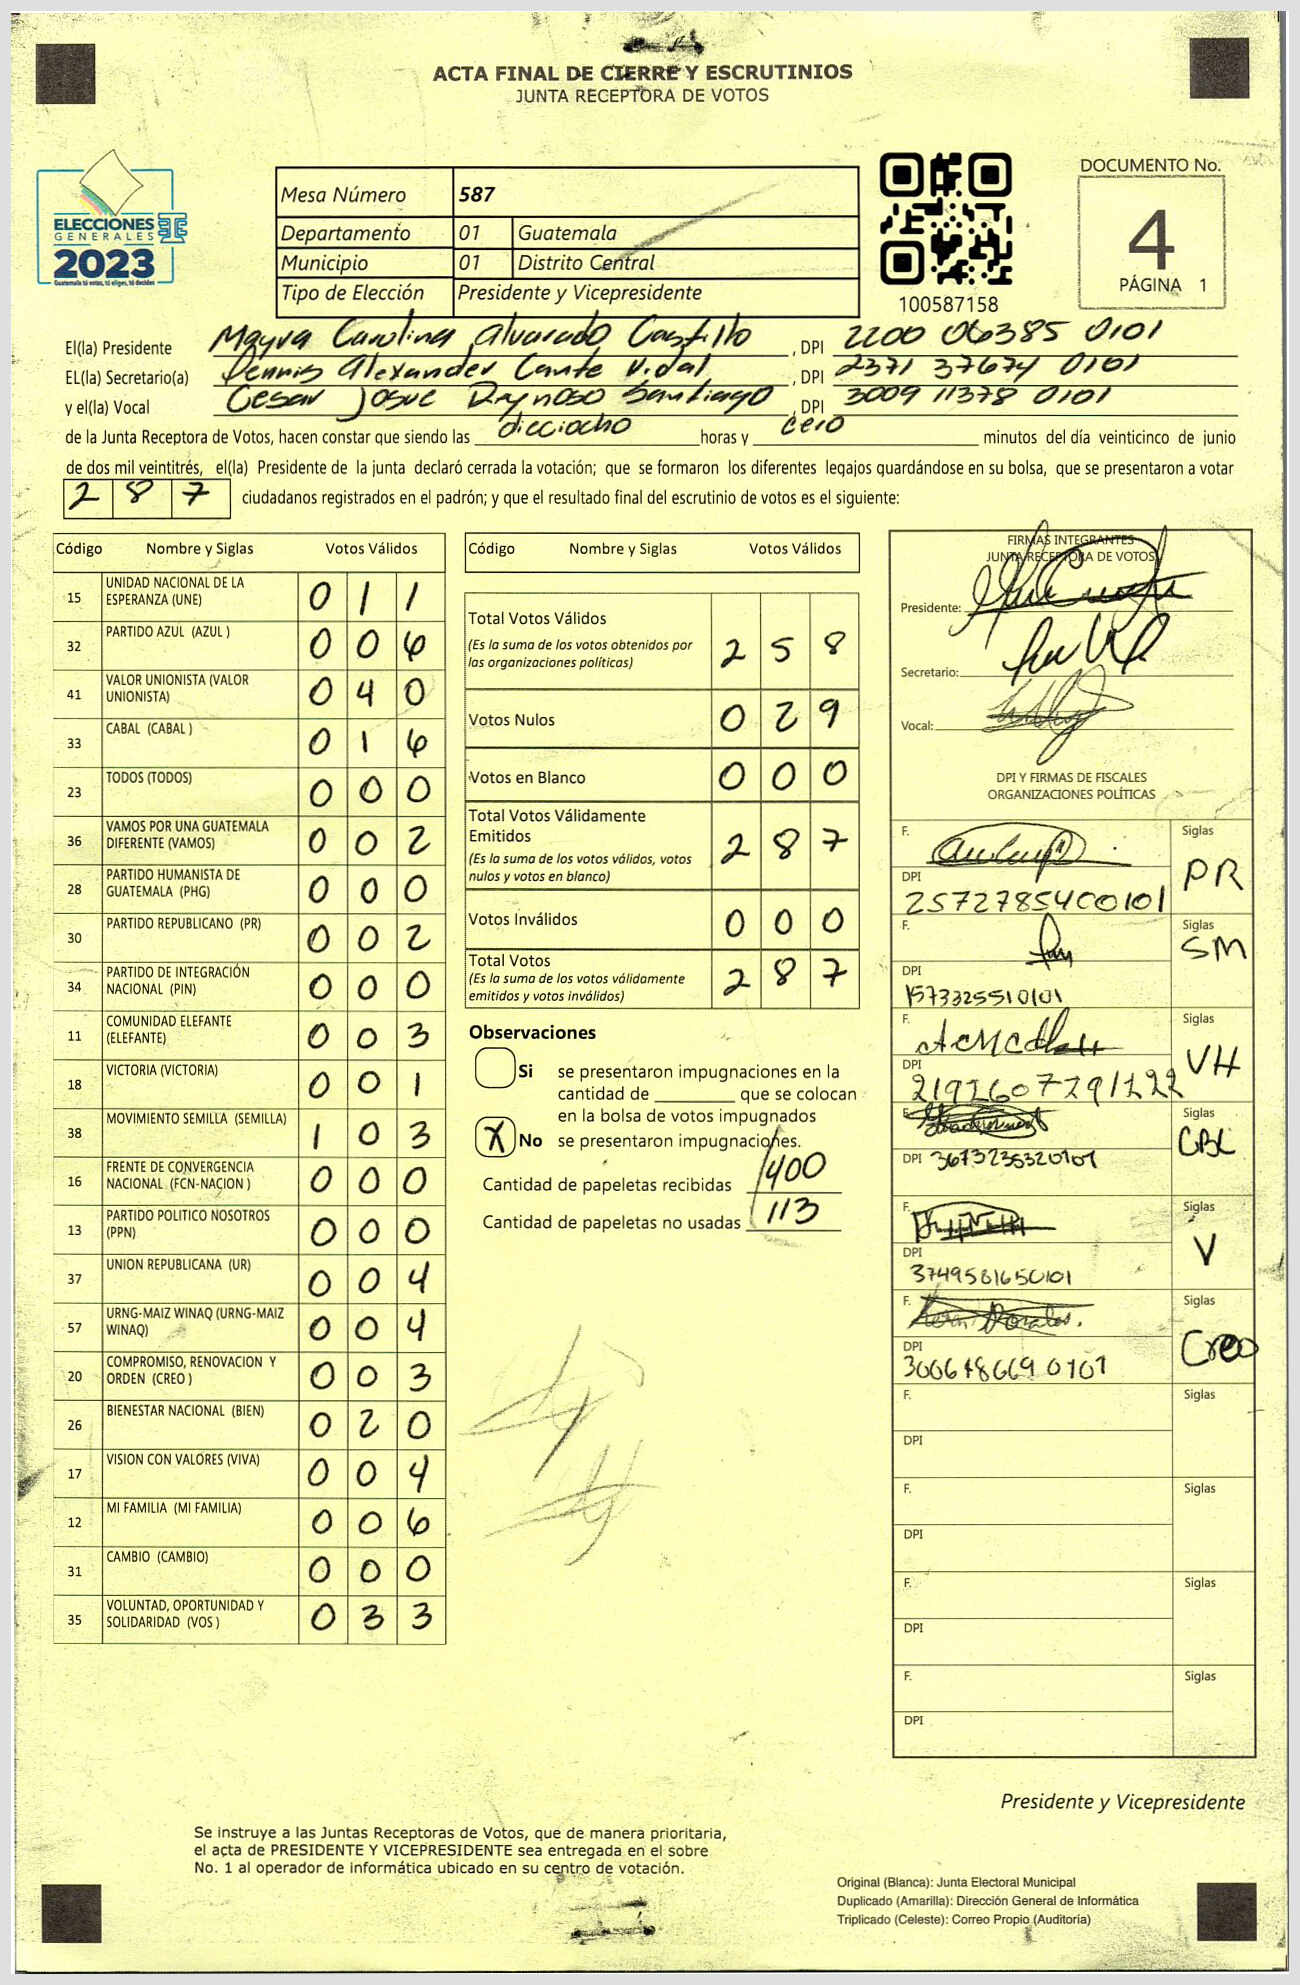 ACTA FINAL DE CIERRE Y ESCRUTINIOS
JUNTA RECEPTORA DE VOTOS
ELECCIONES
GENERALES
2023
Guatemala tú votas, tú eliges, tú decides
Mesa Número 587
Departamento 01 Guatemala
Municipio 01 Distrito Central
Tipo de Elección Presidente y Vicepresidente
100587158
DOCUMENTO No.
4
PÁGINA 1
El(la) Presidente Mayra Carolina Alvarado Castillo , DPI 2200 06385 0101
EL(la) Secretario(a) Dennis Alexander Cante Vidal , DPI 2371 37674 0101
y el(la) Vocal Cesar Josue Reynoso Santiago , DPI 3009 11378 0101
de la Junta Receptora de Votos, hacen constar que siendo las dieciocho horas y cero minutos del día veinticinco de junio
de dos mil veintitrés, el(la) Presidente de la junta declaró cerrada la votación; que se formaron los diferentes legajos guardándose en su bolsa, que se presentaron a votar
287 ciudadanos registrados en el padrón; y que el resultado final del escrutinio de votos es el siguiente:
Código Nombre y Siglas Votos Válidos
15 UNIDAD NACIONAL DE LA ESPERANZA (UNE) 0 1 1
32 PARTIDO AZUL (AZUL ) 0 0 6
41 VALOR UNIONISTA (VALOR UNIONISTA) 0 4 0
33 CABAL (CABAL ) 0 1 6
23 TODOS (TODOS) 0 0 0
36 VAMOS POR UNA GUATEMALA DIFERENTE (VAMOS) 0 0 2
28 PARTIDO HUMANISTA DE GUATEMALA (PHG) 0 0 0
30 PARTIDO REPUBLICANO (PR) 0 0 2
34 PARTIDO DE INTEGRACIÓN NACIONAL (PIN) 0 0 0
11 COMUNIDAD ELEFANTE (ELEFANTE) 0 0 3
18 VICTORIA (VICTORIA) 0 0 1
38 MOVIMIENTO SEMILLA (SEMILLA) 1 0 3
16 FRENTE DE CONVERGENCIA NACIONAL (FCN-NACION ) 0 0 0
13 PARTIDO POLITICO NOSOTROS (PPN) 0 0 0
37 UNION REPUBLICANA (UR) 0 0 4
57 URNG-MAIZ WINAQ (URNG-MAIZ WINAQ) 0 0 4
20 COMPROMISO, RENOVACION Y ORDEN (CREO ) 0 0 3
26 BIENESTAR NACIONAL (BIEN) 0 2 0
17 VISION CON VALORES (VIVA) 0 0 4
12 MI FAMILIA (MI FAMILIA) 0 0 6
31 CAMBIO (CAMBIO) 0 0 0
35 VOLUNTAD, OPORTUNIDAD Y SOLIDARIDAD (VOS ) 0 3 3
Código Nombre y Siglas Votos Válidos
Total Votos Válidos 2 5 8
(Es la suma de los votos obtenidos por
las organizaciones políticas)
Votos Nulos 0 2 9
Votos en Blanco 0 0 0
Total Votos Válidamente
Emitidos 2 8 7
(Es la suma de los votos válidos, votos
nulos y votos en blanco)
Votos Inválidos 0 0 0
Total Votos 2 8 7
(Es la suma de los votos válidamente
emitidos y votos inválidos)
Observaciones
Si se presentaron impugnaciones en la
cantidad de ________ que se colocan
en la bolsa de votos impugnados
X No se presentaron impugnaciones.
Cantidad de papeletas recibidas 400
Cantidad de papeletas no usadas 113
FIRMAS INTEGRANTES
JUNTA RECEPTORA DE VOTOS
Presidente:
Secretario:
Vocal:
DPI Y FIRMAS DE FISCALES
ORGANIZACIONES POLÍTICAS
F. Siglas PR
DPI 2572785400101
F. Siglas SM
DPI 1573325510101
F. Siglas VH
DPI 2192607291222
F. Siglas CBL
DPI 3673235320101
F. Siglas V
DPI 3749581650101
F. Siglas Creo
DPI 3006486690101
F. Siglas
DPI
F. Siglas
DPI
F. Siglas
DPI
F. Siglas
DPI
Presidente y Vicepresidente
Se instruye a las Juntas Receptoras de Votos, que de manera prioritaria,
el acta de PRESIDENTE Y VICEPRESIDENTE sea entregada en el sobre
No. 1 al operador de informática ubicado en su centro de votación.
Original (Blanca): Junta Electoral Municipal
Duplicado (Amarilla): Dirección General de Informática
Triplicado (Celeste): Correo Propio (Auditoría)